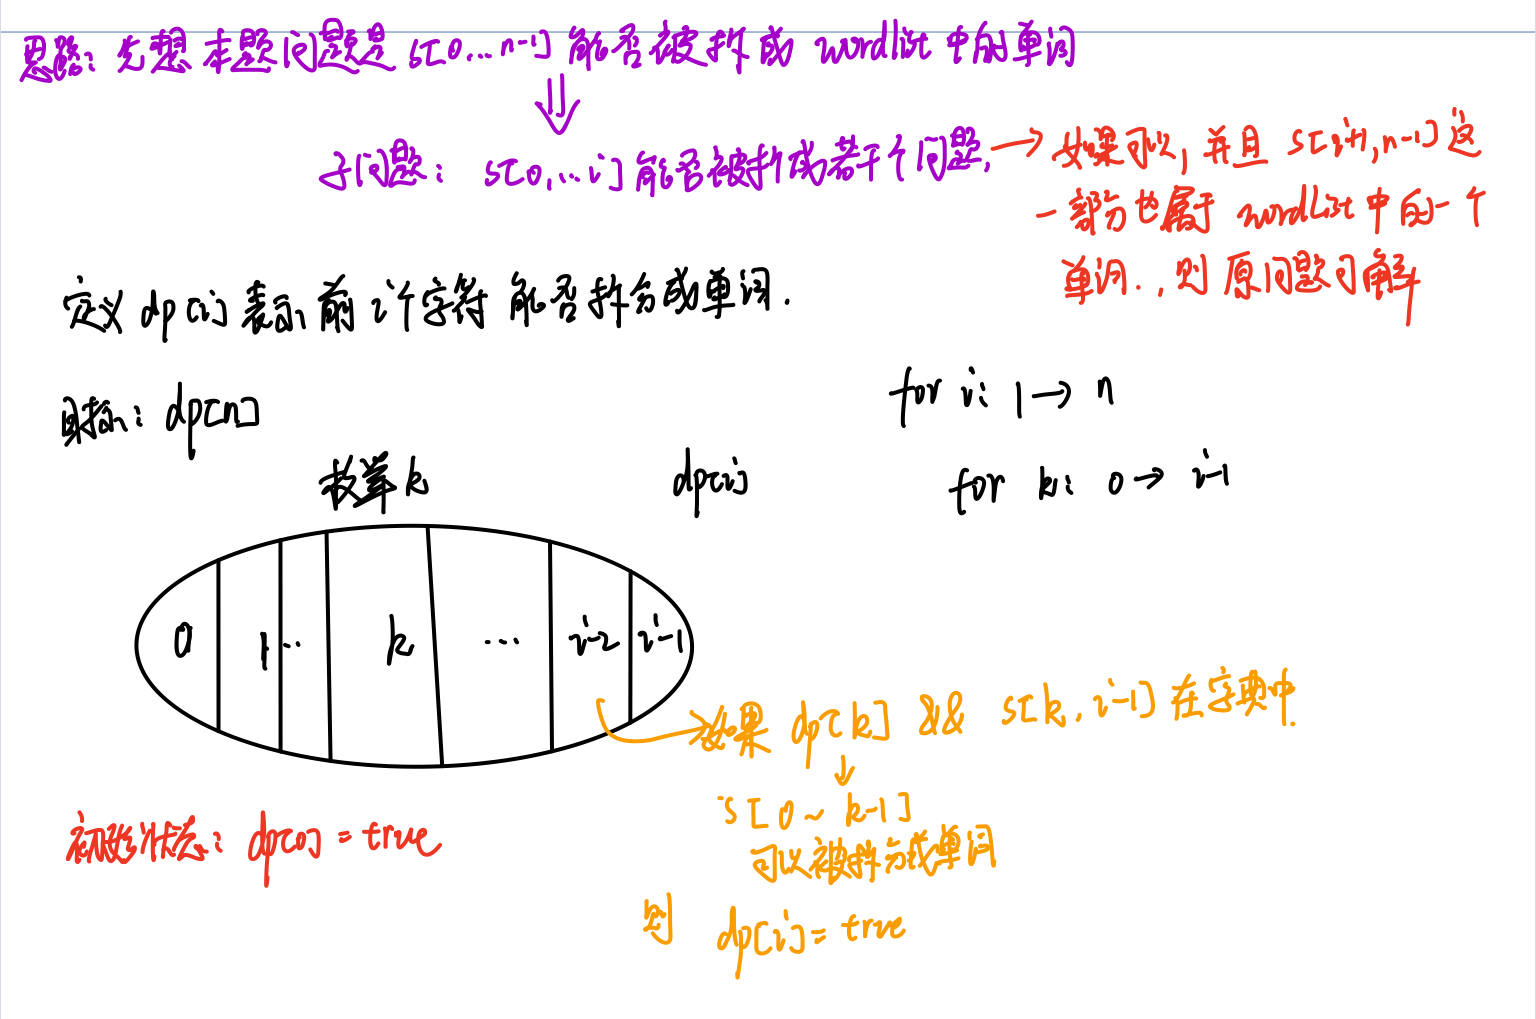 思路：先想本题问题是 s[0...n-1] 能否被拆成 wordlist 中的单词
子问题：s[0,...i] 能否被拆成若干个问题,
→ 如果可以, 并且 s[i+1,n-1] 这
一部分也属于 wordList 中的一个
单词.,则原问题可解
定义 dp[i] 表示前 i 个字符 能否拆分成单词.
目标：dp[n]
for i: 1 → n
for k: 0 → i-1
枚举 k
dp[i]
0 1 ... k ... i-2 i-1
如果 dp[k] && s[k, i-1] 在字典中.
s[0 ~ k-1]
可以被拆分成单词
则 dp[i] = true
初始状态：dp[0] = true